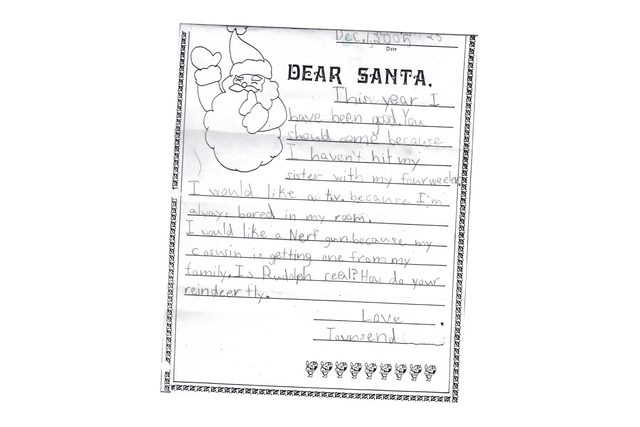 Dec. 1, 2005
Date
DEAR SANTA,
This year I
have been good. You
should come because
I haven't hit my
sister with my fourweeler.
I would like a tv. because I'm
always bored in my room.
I would like a Nerf gun because my
cousuin is getting one from my
family. Is Rudolph real? How do your
reindeer fly.
Love
Townsend